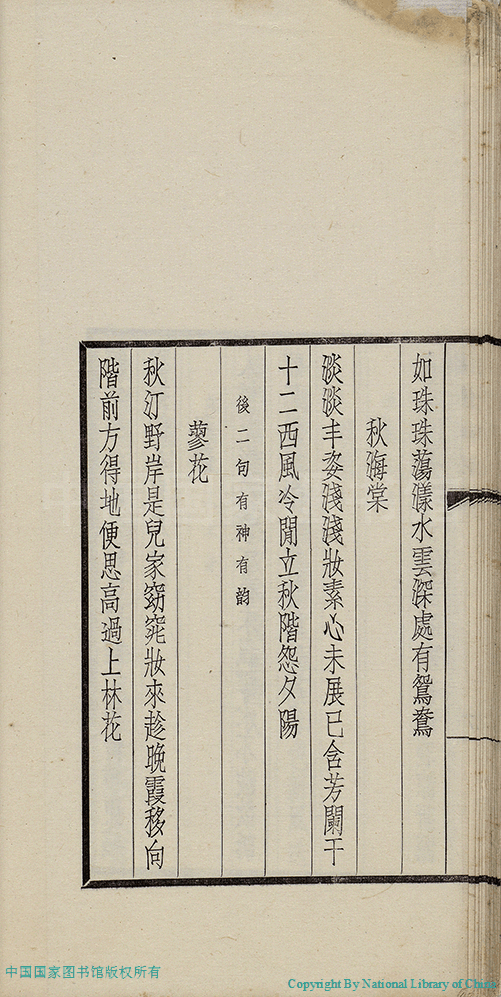 如珠珠蕩漾水雲深處有鴛鴦
秋海棠
淡淡丰姿淺淺妝素心未展已含芳闌干
十二西風冷閒立秋階怨夕陽
後二句有神有韵
蓼花
秋汀野岸是兒家窈窕妝來趁晚霞移向
階前方得地便思高過上林花
中国国家图书馆版权所有
Copyright By National Library of China